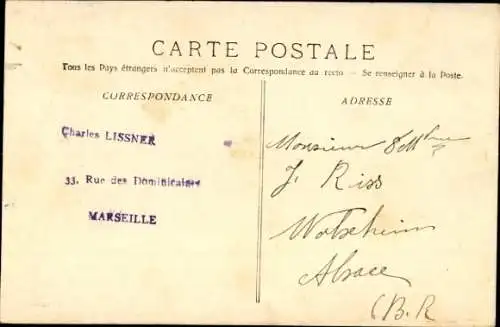 CARTE POSTALE
Tous les Pays étrangers n'acceptent pas la Correspondance au recto - Se renseigner à la Poste.
CORRESPONDANCE
ADRESSE
Charles LISSNER
33. Rue des Dominicaines
MARSEILLE
Monsieur
J. Riss
Wolxheim
Alsace
(B. R